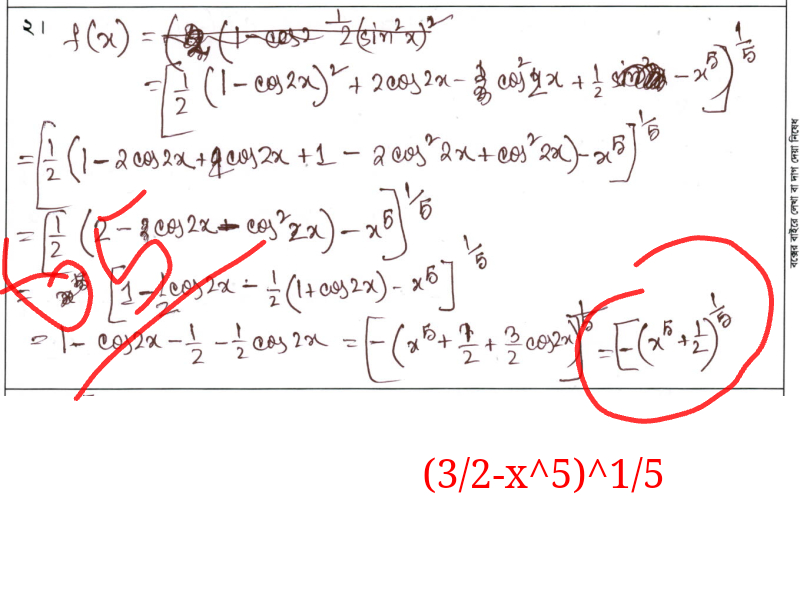 ২। f(x) = 1/2 (sin²x)²
= [1/2 (1 - cos2x)² + 2cos2x - cos²2x + 1/2 - x⁵]^1/5
= [1/2 (1 - 2cos2x + cos2x + 1 - 2cos²2x + cos²2x) - x⁵]^1/5
= [1/2 (2 - cos2x - cos²2x) - x⁵]^1/5
= [1 - 1/2 cos2x - 1/2 (1 + cos2x) - x⁵]^1/5
= 1 - cos2x - 1/2 - 1/2 cos2x = [-(x⁵ + 1/2 + 3/2 cos2x)]^1/5 = [-(x⁵ + 1/2)^1/5
5
(3/2-x^5)^1/5
বক্সের বাইরে লেখা বা দাগ দেয়া নিষেধ